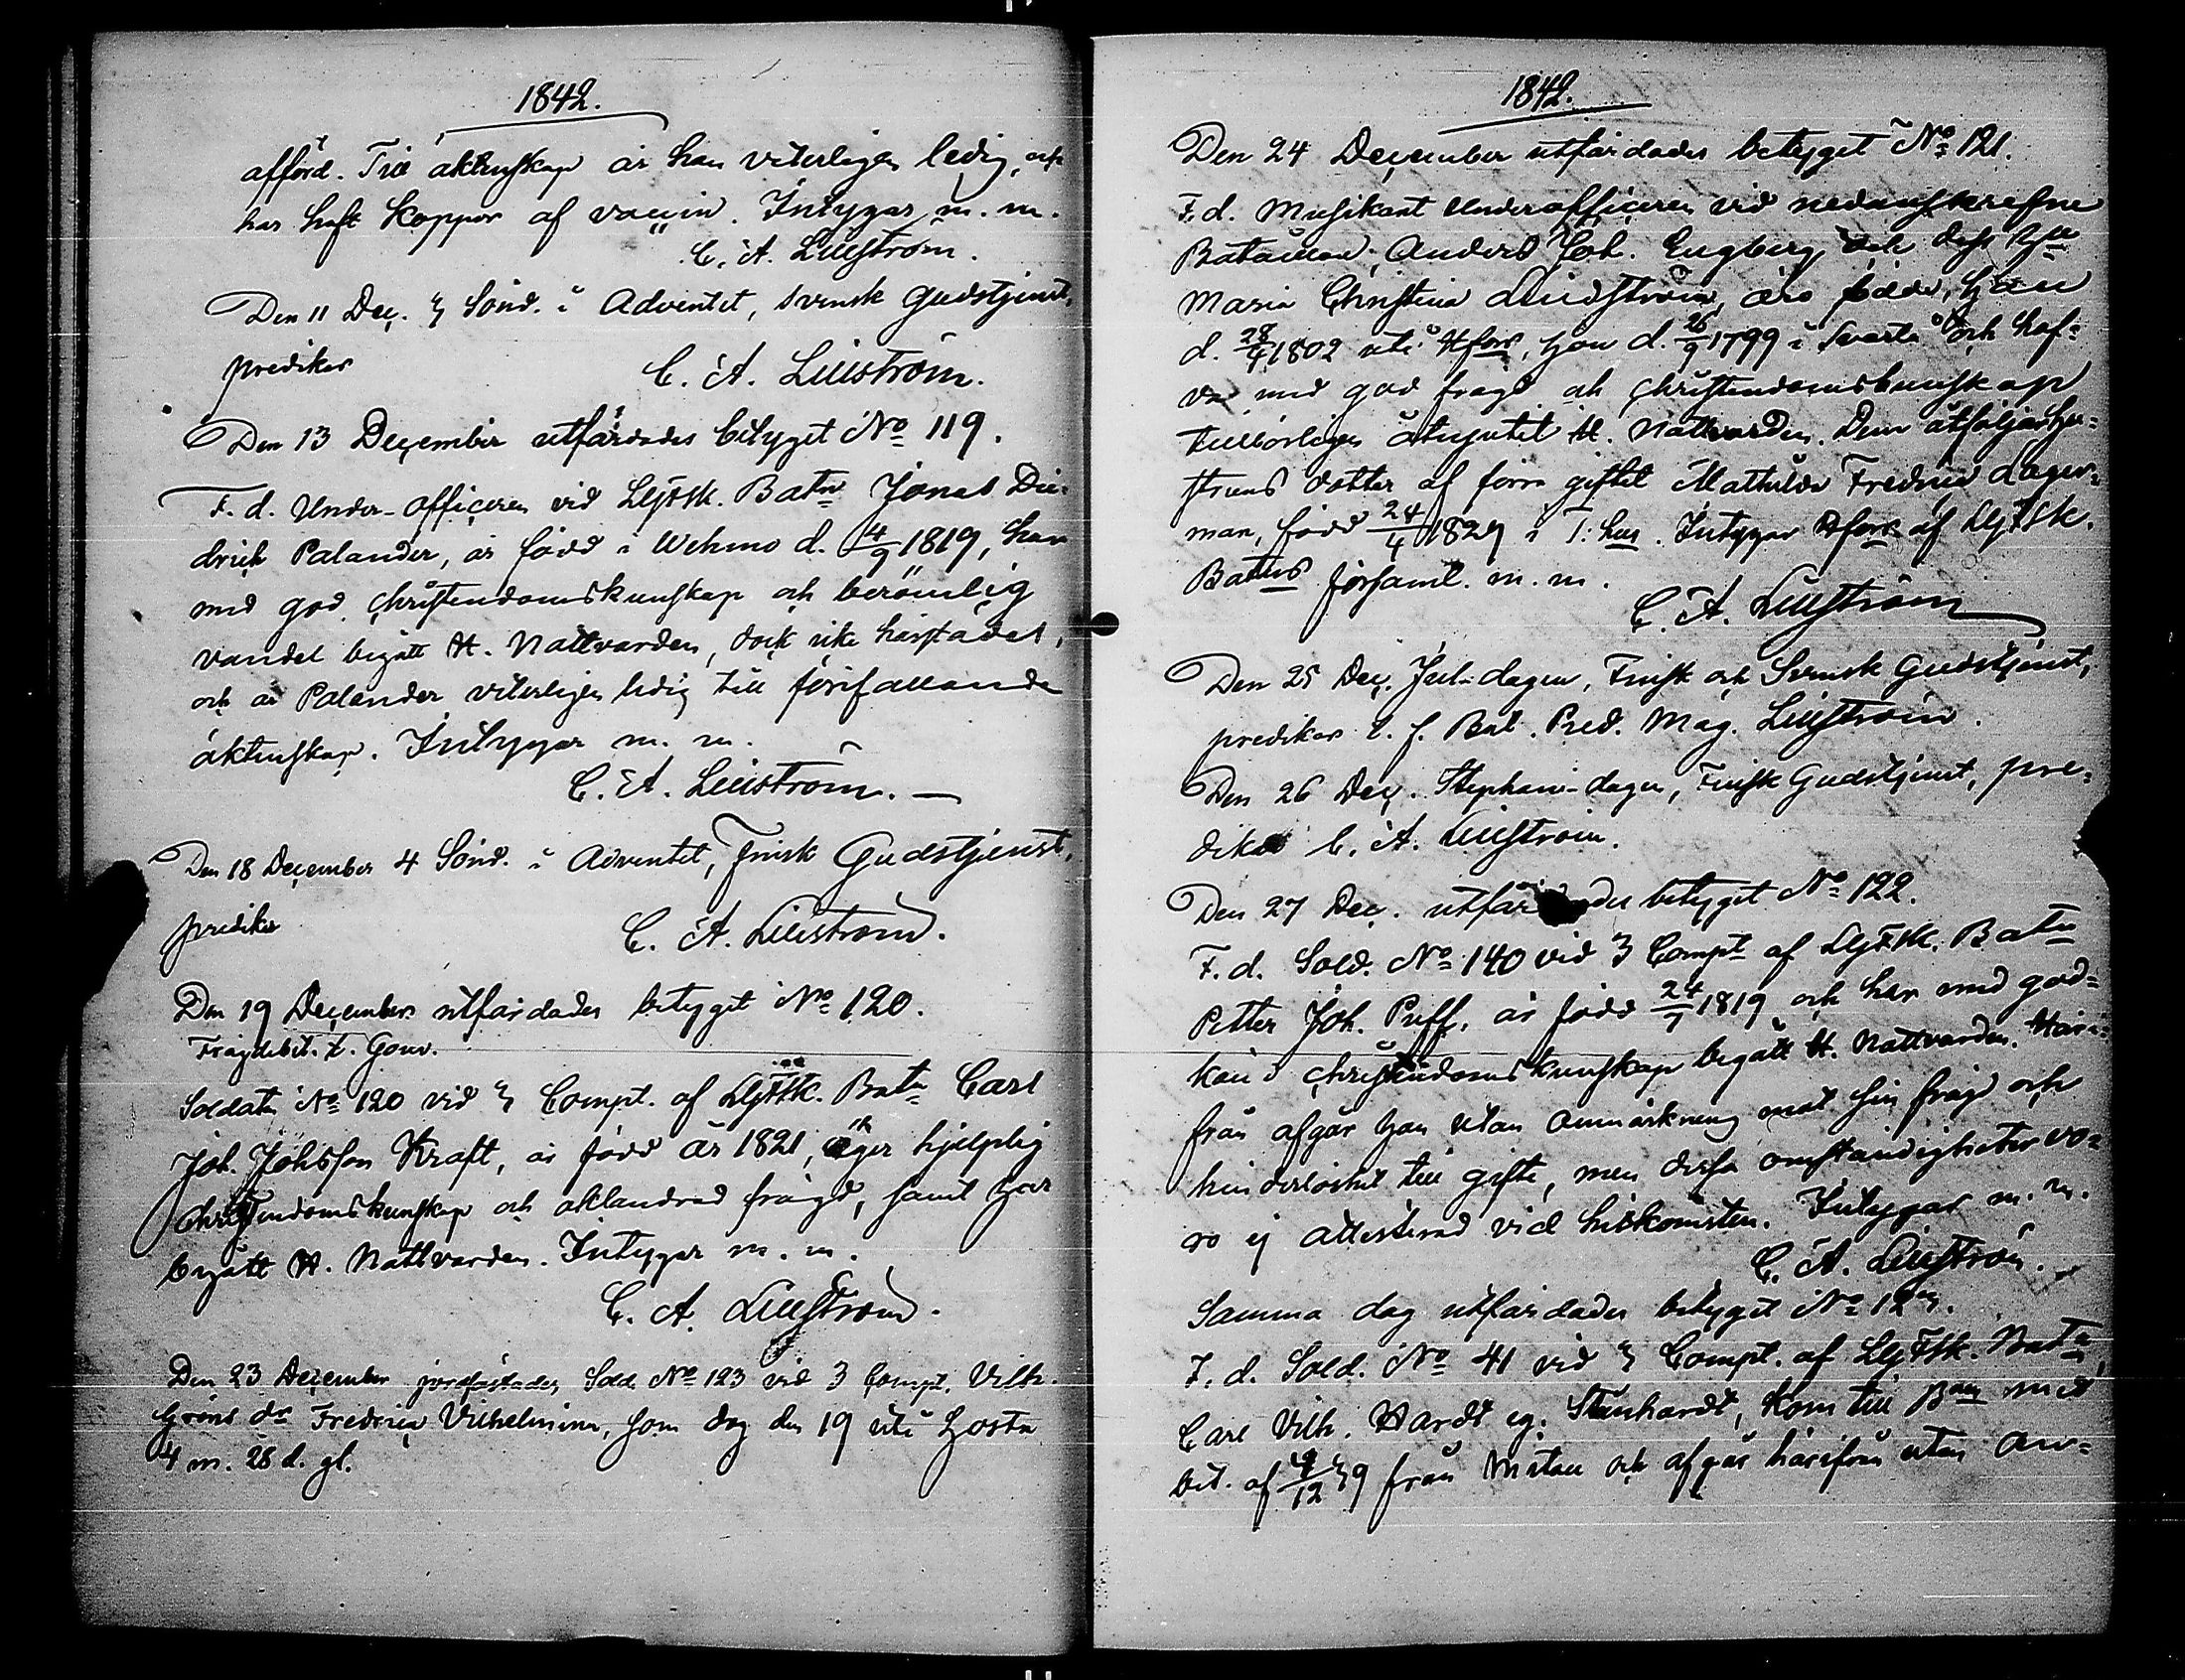 1842.
afförd. Till äktenskap är han viterligen ledig, och
har haft koppor af vaccin. Intygar m. m.
C. A. Lillström.
Den 11 Dec. 3 Sönd. i Adventet, svensk Gudstjenst,
predikar
C. A. Lillström.
Den 13 December utfärdades betyget No 119.
F. d. Under-officeren vid LgFSk. Batn Jonas Die-
drich Palander, är född i Wehmo d. 4/9 1819, har
med god christendomskunskap och berömlig
vandel begått H. Nattvarden, dock icke härstädes,
och är Palander viterligen ledig till förefallande
äktenskap. Intygar m. m.
C. A. Lillström. —
Den 18 December 4 Sönd. i Adventet, finsk Gudstjenst,
predikar
C. A. Lillström.
Den 19 December utfärdades betyget No 120.
Frägdebet. t. Gouv.
Soldaten No 120 vid 3 Compt. af LgFSk. Batn Carl
Joh. Johsson Kraft, är född år 1821, äger hjelplig
christendomskunskap och oklandrad frägd, samt har
begått H. Nattvarden. Intygar m. m.
C. A. Lillström.
Den 23 December jordfästades Sold. No 123 vid 3 Compt. Vilh.
Gröns dr Fredrica Vilhelmina, som dog den 19 uti hosta
4 m. 28 d. gl.
1842.
Den 24 December utfärdades betyget No 121.
F. d. Musikant Underofficeren vid nedanskrefne
Bataillon, Anders Joh. Engberg och dess hu
Maria Christina Lindström, äro födde, han
d. 28/4 1802 uti Hfors, hon d. 26/9 1799 i Svartå och haf-
va med god frägd och christendomskunskap
tillbörligen åtnjutit H. Nattvarden. Dem åtföljer hu-
struns dotter af förra giftet Mathilda Fredrica Lager-
man, född 24/4 1829 i T:hus. Intygar Hfors af LgFSk.
Batns församl. m. m.
C. A. Lillström
Den 25 Dec. Jul-dagen, Finsk och Svensk Gudstjenst,
predikar t. f. Bat. Pred. Mag. Lillström.
Den 26 Dec. Stephani-dagen, Finsk Gudstjenst, pre-
dikar C. A. Lillström.
Den 27 Dec. utfärdades betyget No 122.
F. d. Sold. No 140 vid 3 Compt af LgFSk. Batn
Petter Joh. Puff, är född 24/7 1819 och har med god-
känd christendomskunskap begått H. Nattvarden. Häri-
från afgår han utan anmärkning mot sin frägd och
hinderlöshet till gifte, men dessa omständigheter vo-
ro ej attesterad vid hitkomsten. Intygar m. m.
C. A. Lillström.
Samma dag utfärdades betyget No 123.
F. d. Sold. No 41 vid 3 Compt. af LgFSk. Batn,
Carl Vilh. Hardt eg. Stenhardt, kom till Bn med
bet. af 9/12 39 från Mitau och afgår härifrån utan an-